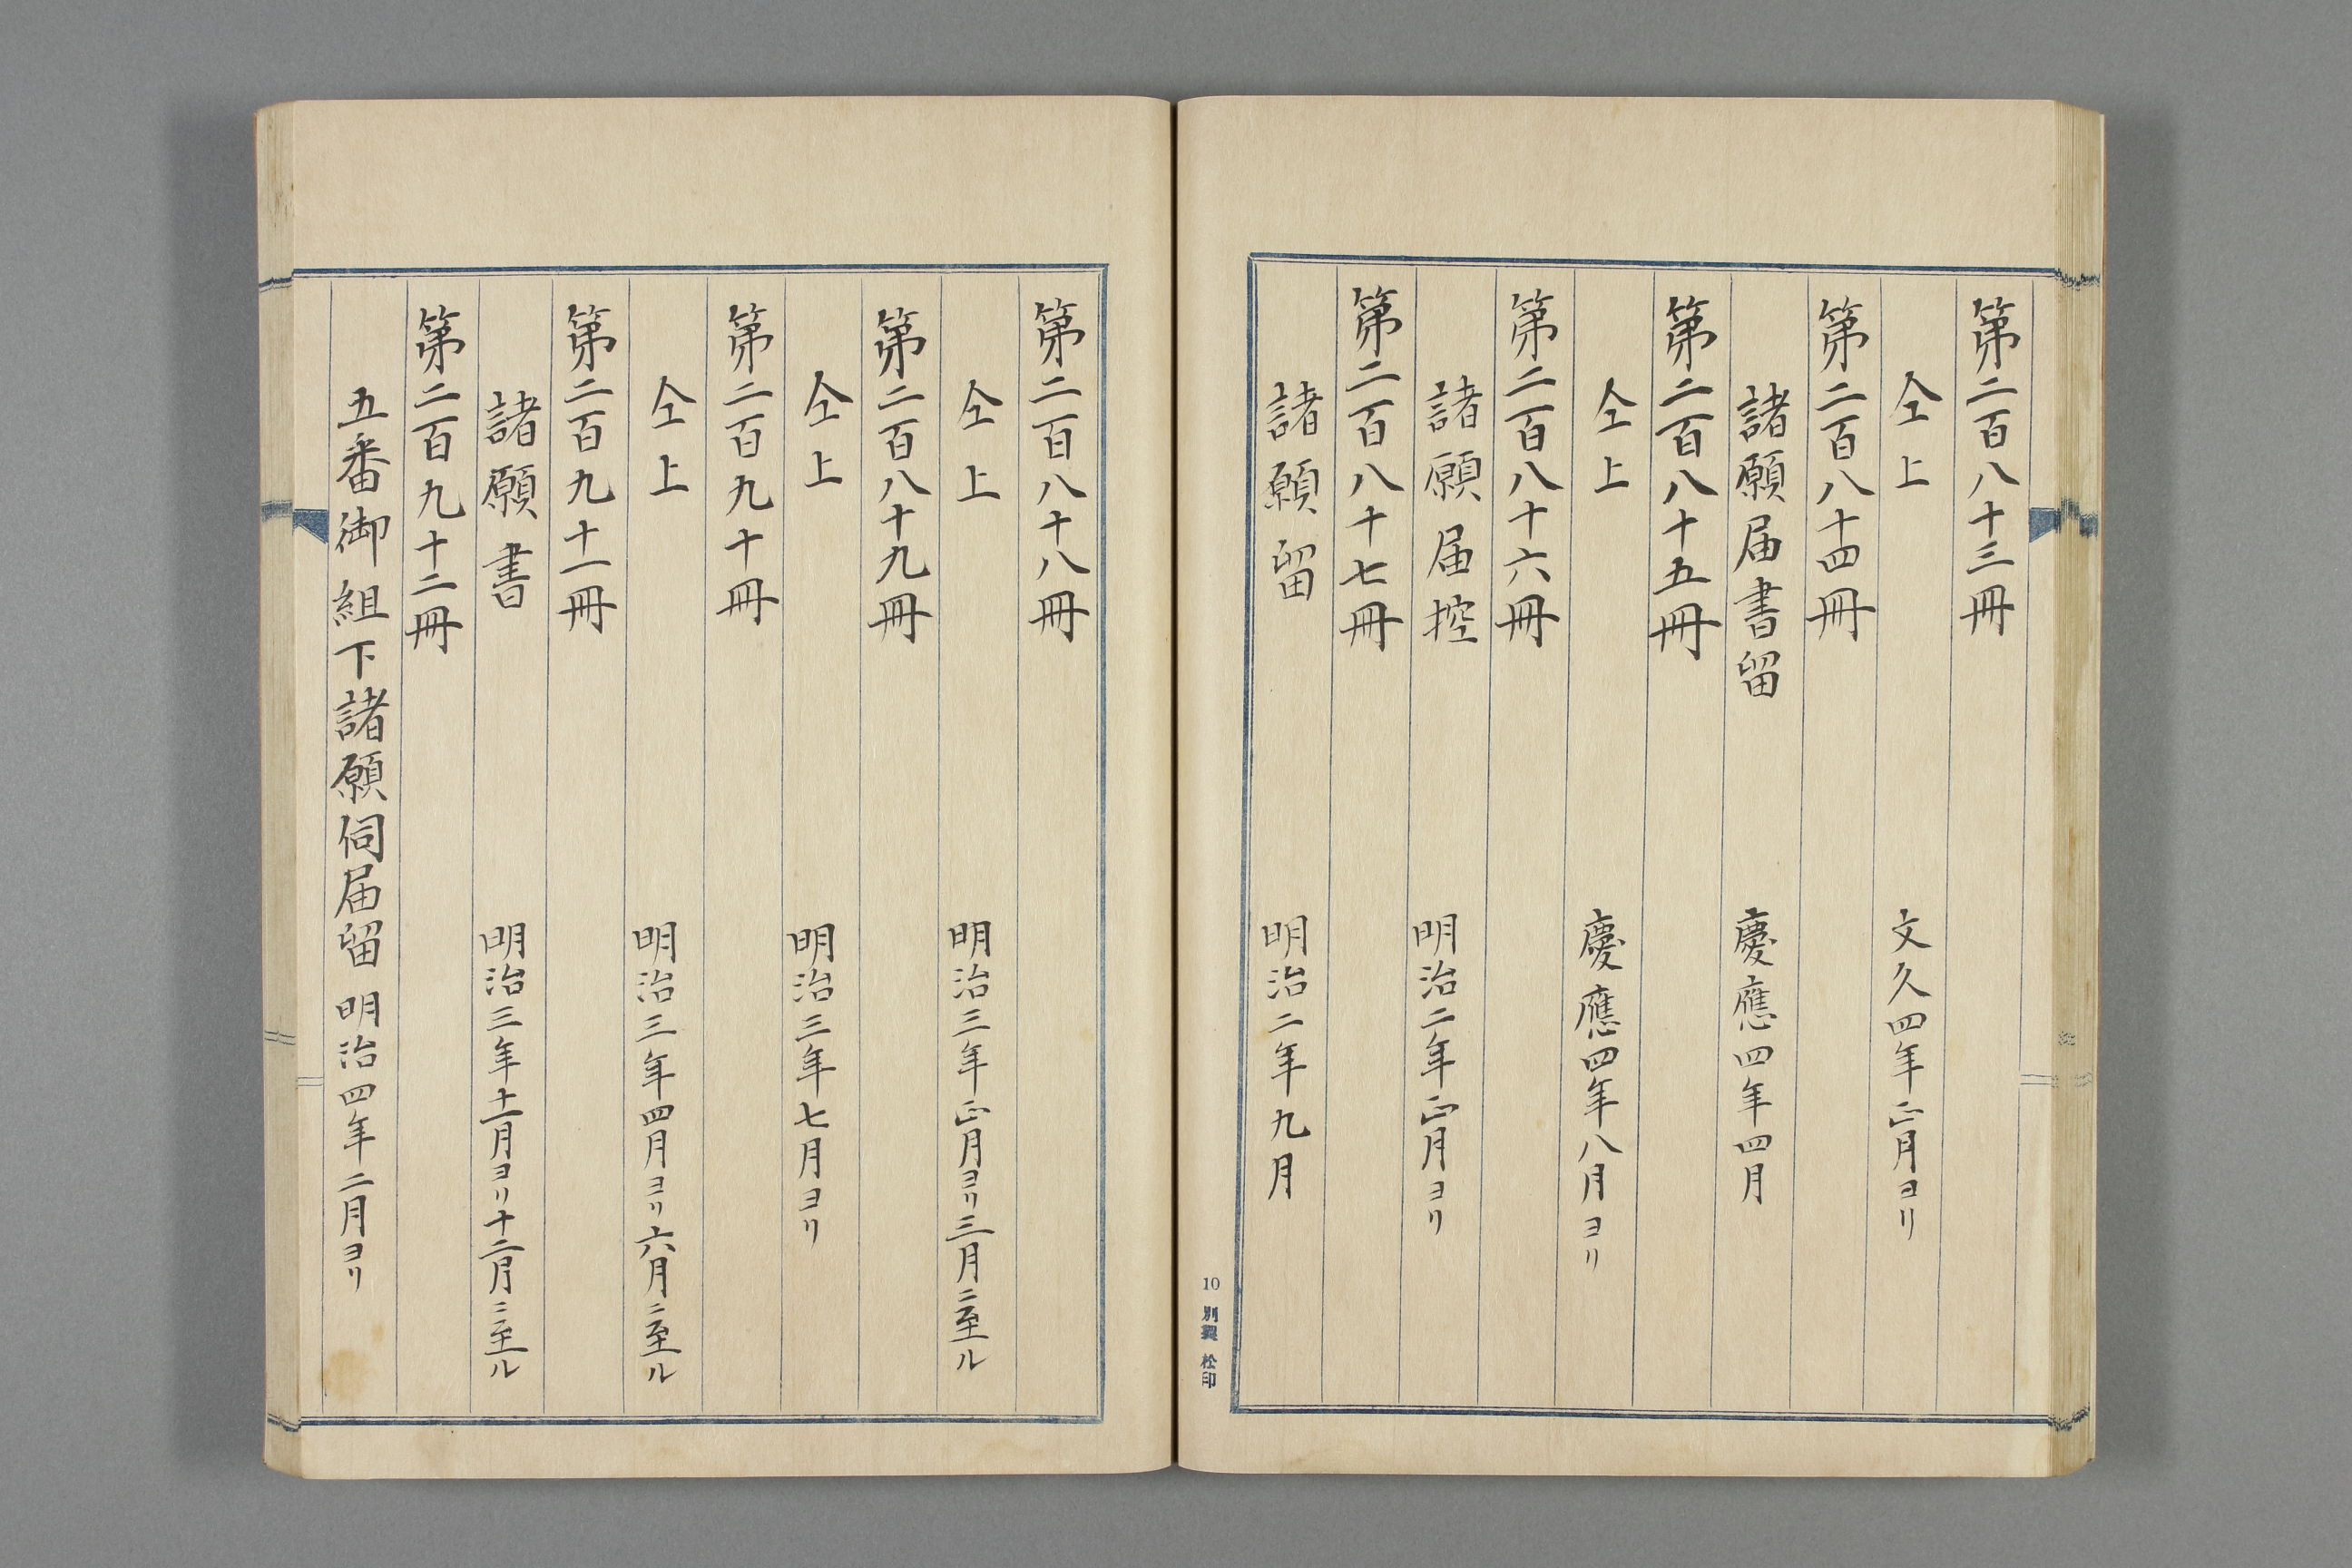 第二百八十三冊
仝上 文久四年正月ヨリ
第二百八十四冊
諸願届書留 慶應四年四月
第二百八十五冊
仝上 慶應四年八月ヨリ
第二百八十六冊
諸願届控 明治二年正月ヨリ
第二百八十七冊
諸願留 明治二年九月
10 別製 松印
第二百八十八冊
仝上 明治三年正月ヨリ三月ニ至ル
第二百八十九冊
仝上 明治三年七月ヨリ
第二百九十冊
仝上 明治三年四月ヨリ六月ニ至ル
第二百九十一冊
諸願書 明治三年十一月ヨリ十二月ニ至ル
第二百九十二冊
五番御組下諸願伺届留 明治四年二月ヨリ